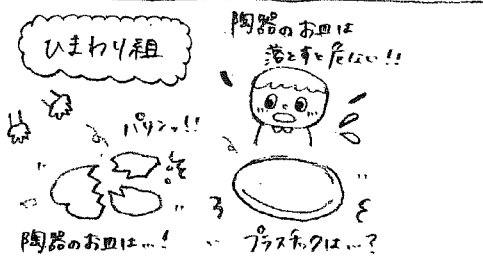 ひまわり組
陶器のお皿は
落とすと危ない!!
パリンッ!!
陶器のお皿は…!
プラスチックは…?